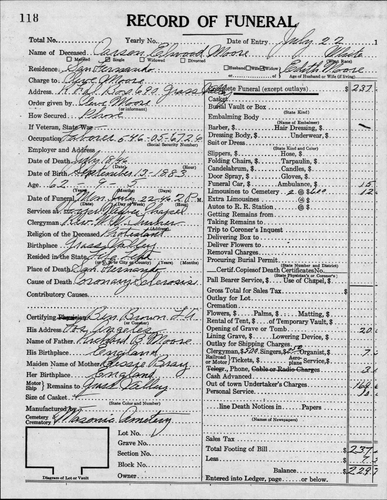 118
RECORD OF FUNERAL
Total No. Yearly No. Date of Entry July 22
Name of Deceased Carson Elwood Moore White
Married Single Widowed Divorced
Residence San Fernando Husband Wife Widow Edith Moore
Charge to Clive Moore Age of Husband or Wife (if living)
Address R.F.D. Box 690 Grass Valley
Order given by Clive Moore
How Secured Phone
If Veteran, State War
Occupation Laborer 546-05-6726
Employer and Address
Date of Death July 18 46
Date of Birth September 13-1883
Age 62 9
(Years) (Months) (Days)
Date of Funeral Mon. July 22 46 2 P.M.
Services at Chapel
Clergyman Rev.
Religion of the Deceased Protestant
Birthplace Grass Valley
Resided in the State Life
Place of Death San Fernando
Cause of Death Coronary Sclerosis
Contributory Causes
Certifying Ben Brown
His Address Los Angeles
Name of Father Richard B. Moore
His Birthplace England
Maiden Name of Mother Bray
Her Birthplace England
Motor Ship Remains to Grass Valley
Size of Casket
(State Color and Number)
Manufactured by
Cemetery Crematory Masonic Cemetery
Lot No.
Grave No.
Section No.
Block No.
Owner
Diagram of Lot or Vault
Complete Funeral (except outlays) $ 237
Casket
Burial Vault or Box
(State Kind)
Embalming Body
(Name of Embalmer)
Barber, $ Hair Dressing, $
Dressing Body, $ Underwear, $
Suit or Dress
(State Kind and Color)
Slippers, $ Hose, $
Folding Chairs, $ Tarpaulin, $
Candelabrum, $ Candles, $
Door Spray, $ Gloves, $
Funeral Car, $ Ambulance, $ 15
Limousines to Cemetery 2 @ $6.00 12
Extra Limousines @ $
Autos to R. R. Station @ $
Getting Remains from
Taking Remains to
Trip to Coroner's Inquest
Delivering Box to
Deliver Flowers to
Removal Charges
Procuring Burial Permit
(State Number and District)
Certif. Copies of Death Certificate No.
(State Physician's or Coroner's)
Pall Bearer Service, $ Use of Chapel, $
Gross Total for Sales Tax $
Outlay for Lot
Cremation
Flowers, $ Palms, $ Matting, $
Rental of Tent, $ of Temporary Vault, $
Opening of Grave or Tomb 20
Lining Grave, $ Lowering Device, $
Outlay for Shipping Charges
Clergyman, $ Singers, $ Organist, $
Railroad Tickets, $ Aero Service, $
Telegr., Phone, Cable or Radio Charges
Cash Advanced
Out of town Undertaker's Charges
Personal Service
line Death Notices in Papers
(Names of Newspapers)
Sales Tax
Total Footing of Bill $ 237
Less
Balance $ 229
Entered into Ledger, page or below.